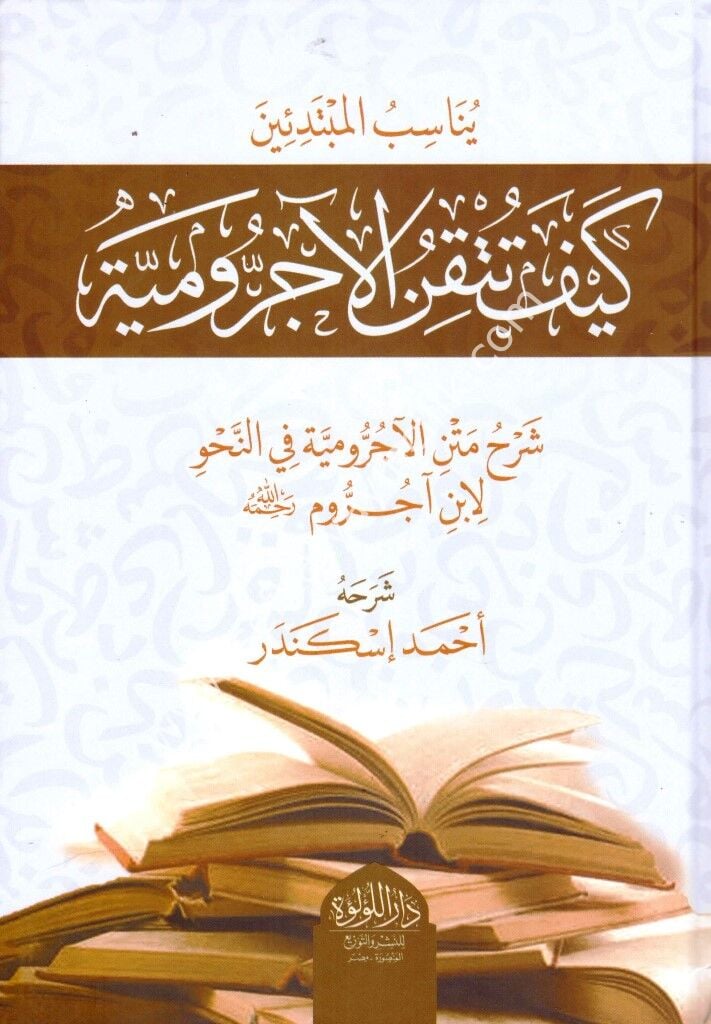 يُنَاسِبُ المُبْتَدِئِينَ
كَيْفَ تُتْقِنُ الآجُرُّومِيَّةَ
شَرْحُ مَتْنِ الآجُرُّومِيَّة فِي النَّحْوِ
لِابْنِ آجُرُّوم رَحِمَهُ اللهُ
شَرَحَهُ
أَحْمَد إِسْكَنْدَر
دَارُ اللُّؤْلُؤَةِ
لِلنَّشْرِ وَالتَّوْزِيعِ
المَنْصُورَة - مِصْر
.com